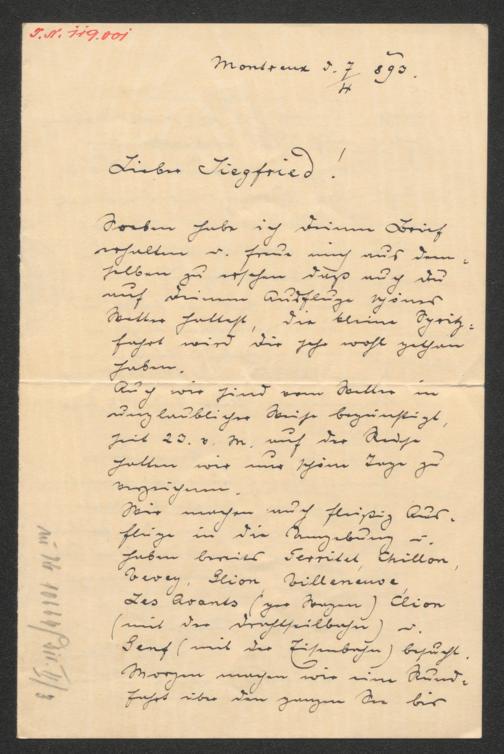 I.N. 119.001
Montreux d. 7/4 893.
Lieber Siegfried!
Soeben habe ich Deinen Brief
erhalten u. freue mich aus dem-
selben zu ersehen daß auch Du
auf Deinem Ausfluge schönes
Wetter hattest, die kleine Spritz-
fahrt wird Dir sehr wohl gethan
haben.
Auch wir sind vom Wetter in
unglaublicher Weise begünstigt,
seit 23. v. M. auf der Reise
hatten wir nur schöne Tage zu
verzeichnen.
Wir machen auch fleißig Aus-
flüge in die Umgebung u.
haben bereits Territet, Chillon,
Vevey, Glion Villeneuve,
Les Avants (per Wagen) Glion
(mit der Drahtseilbahn) u.
Genf (mit der Eisenbahn) besucht.
Morgen machen wir eine Rund-
fahrt über den ganzen See bis